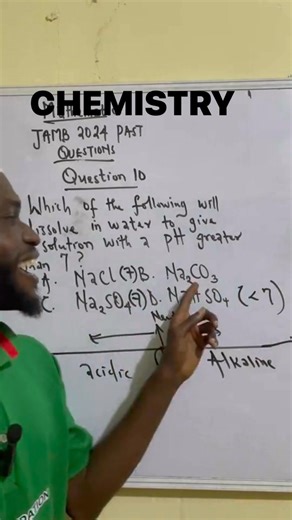 CHEMISTRY
JAMB 2024 PAST
QUESTIONS
Question 10
Which of the following will
dissolve in water to give
solution with a pH greater
than 7?
A. NaCl (7) B. Na₂CO₃
C. Na₂SO₄ (7) D. SO₄ (<7)
acidic Alkaline